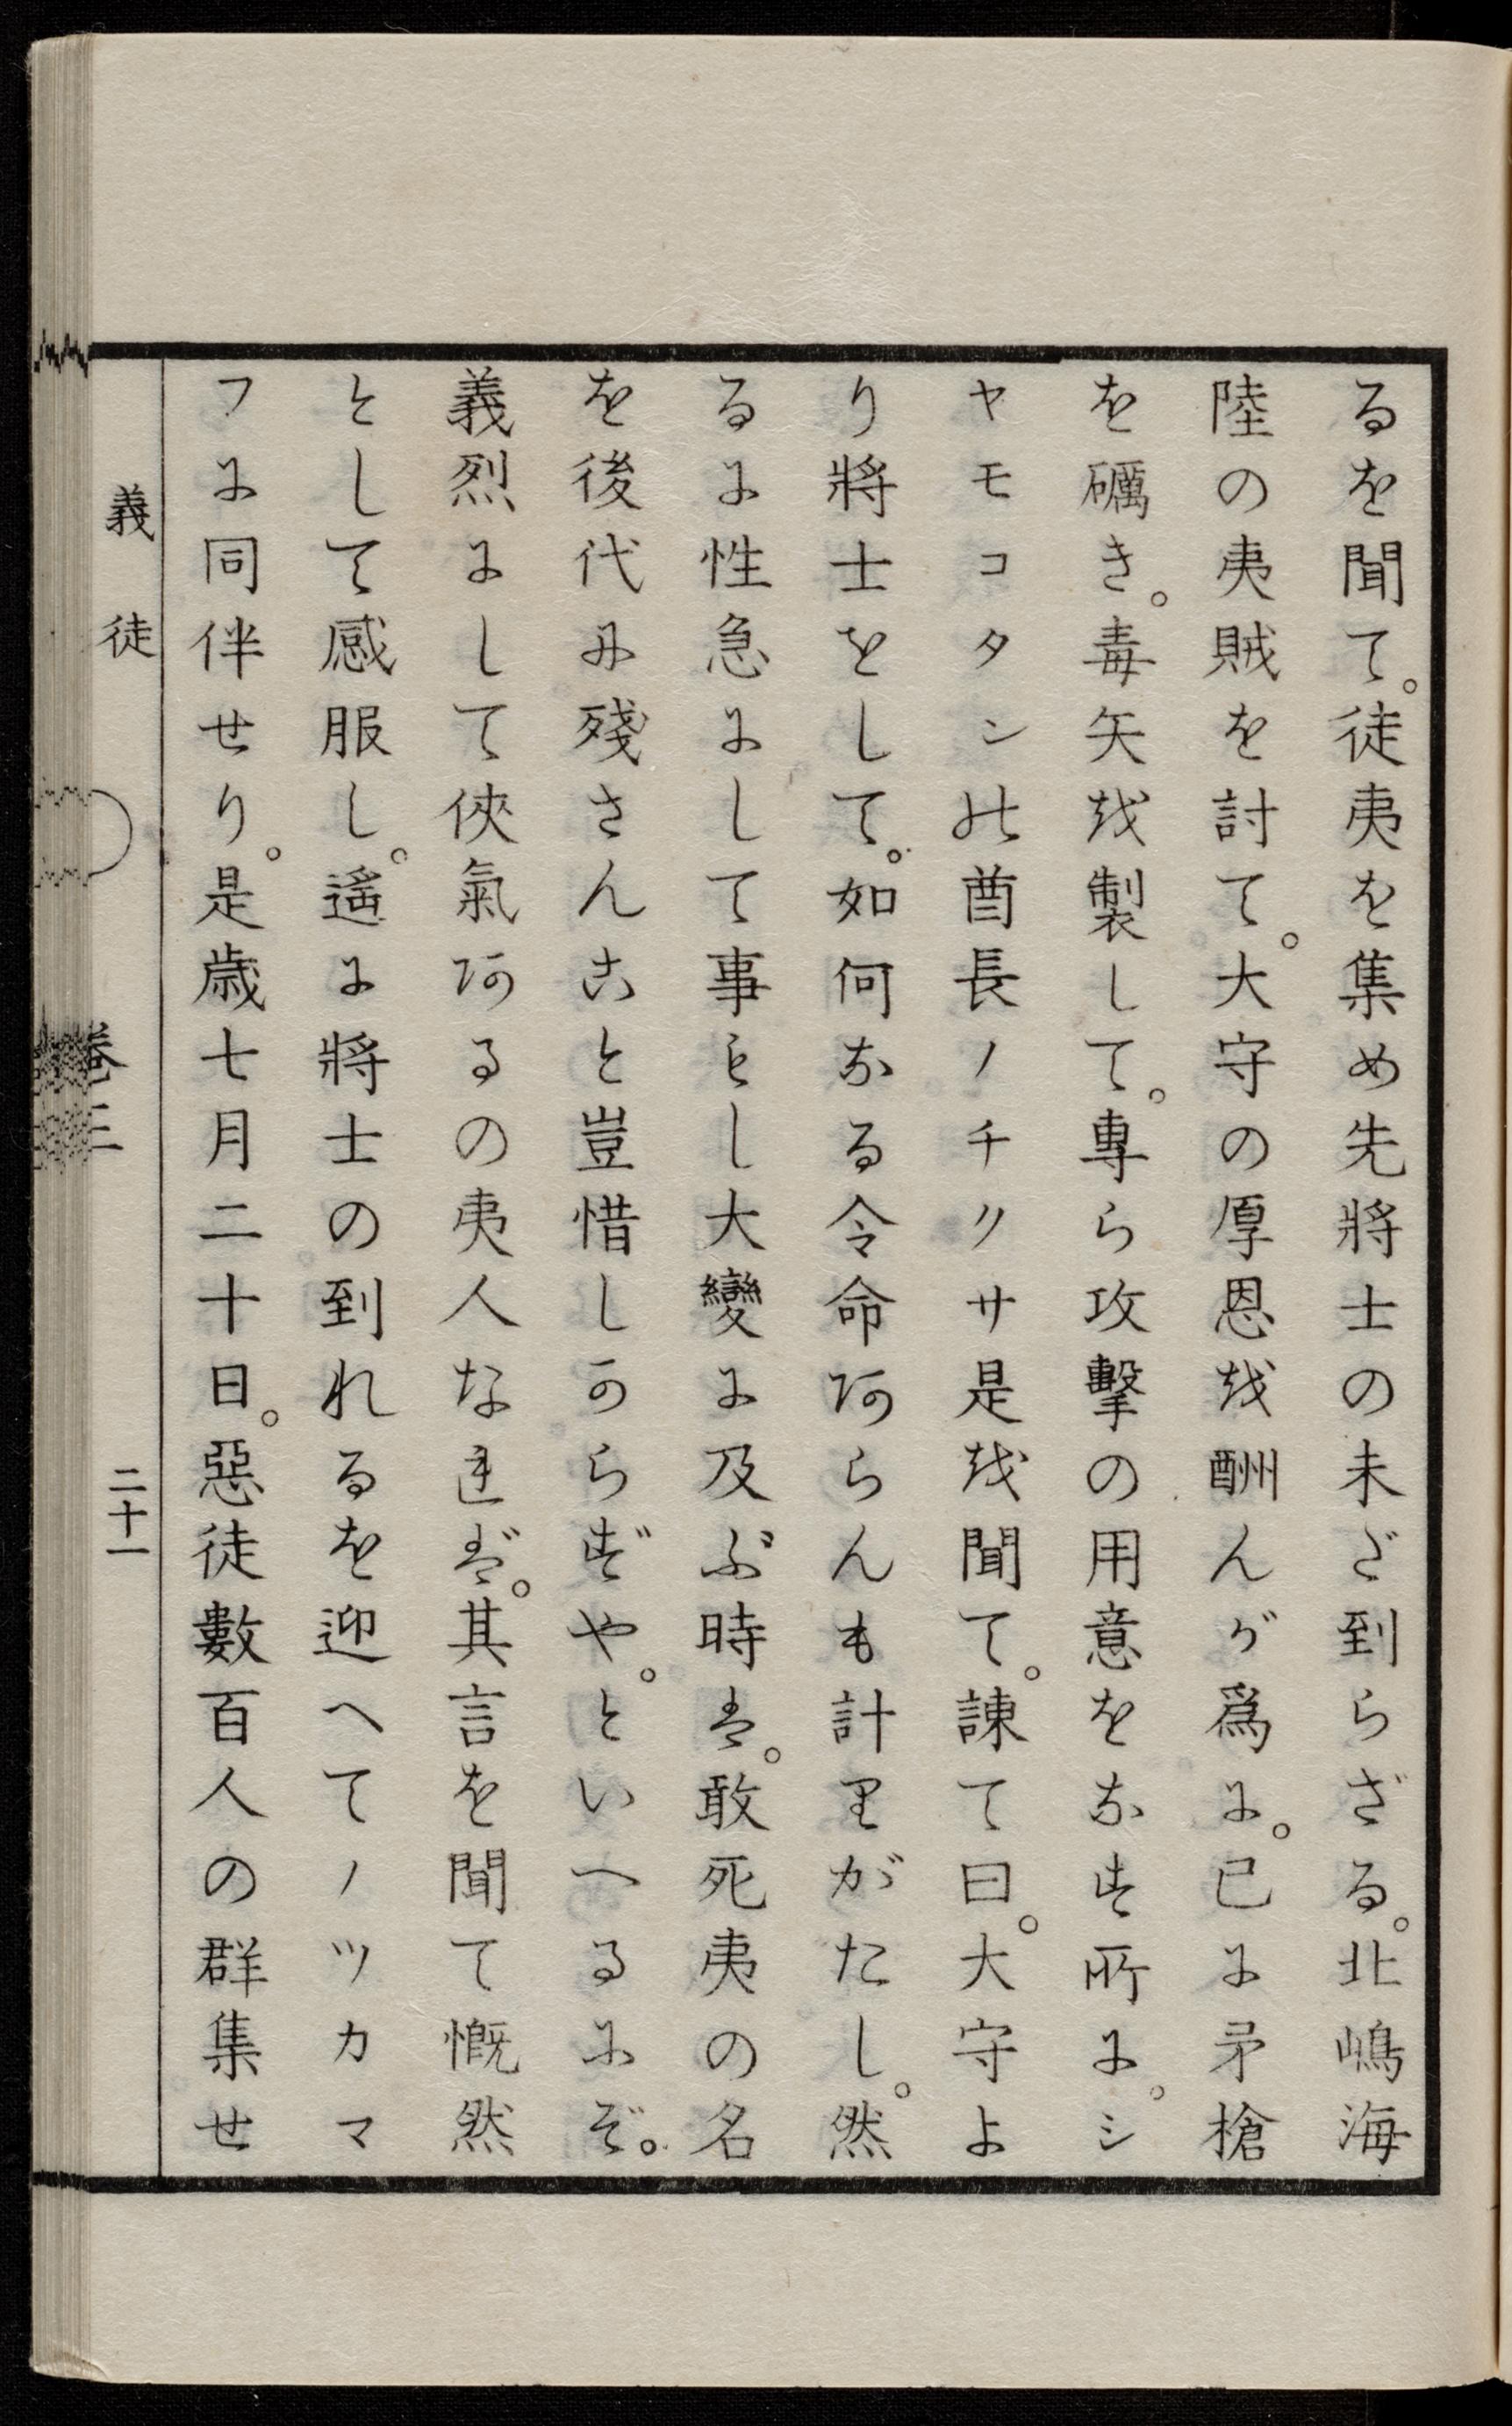 るを聞て。徒夷を集め先將士の未ざ到らざる。北嶋海
陸の夷賊を討て。大守の厚恩越酬んが爲に。已に矛槍
を礪き。毒矢越製して。專ら攻擊の用意をなす所に。シ
ヤモコタンの酋長ノチクサ是越聞て。諌て曰。大守よ
り將士をして。如何なる令命阿らんも計里がたし。然
るに性急にして事をし大變に及ぶ時は。敢死夷の名
を後代に殘さんこと豈惜しからずや。といへるにぞ。
義烈にして俠氣阿るの夷人なれば。其言を聞て慨然
として感服し。遙に將士の到れるを迎へてノツカマ
フに同伴せり。是歳七月二十日。惡徒數百人の群集せ
義徒 卷三 二十一